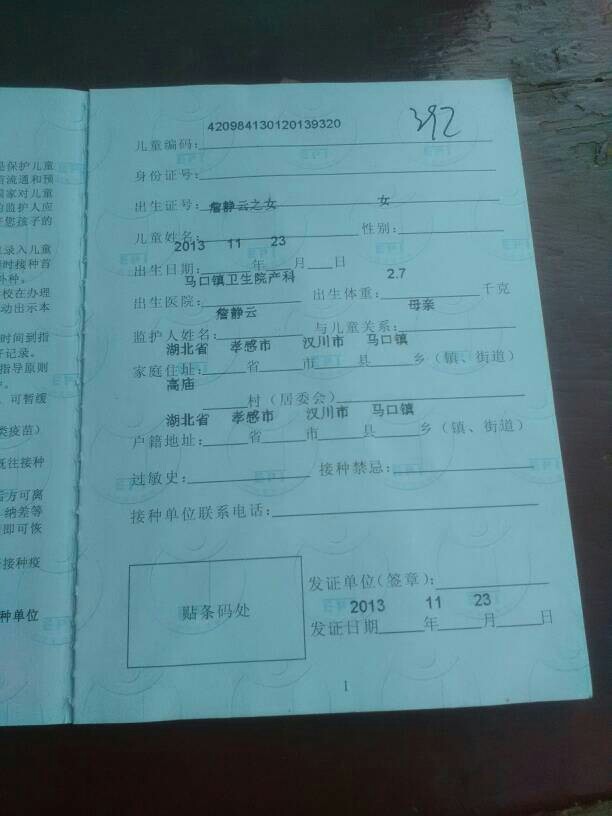 是保护儿童
国家对儿童
的监护人应
您孩子的
录入儿童
时接种首
校在办理
动出示本
时间到指
记录。
指导原则
可暂缓
类疫苗)
既往接种
后方可离
纳差等
即可恢
接种疫
种单位
420984130120139320
392
儿童编码:
身份证号:
出生证号:
詹静云之女 女
儿童姓名: 性别:
2013 11 23
出生日期: 年 月 日
马口镇卫生院产科 2.7
出生医院: 出生体重: 千克
詹静云 母亲
监护人姓名: 与儿童关系:
湖北省 孝感市 汉川市 马口镇
家庭住址: 省 市 县 乡(镇、街道)
高庙
村(居委会)
湖北省 孝感市 汉川市 马口镇
户籍地址: 省 市 县 乡(镇、街道)
过敏史: 接种禁忌:
接种单位联系电话:
贴条码处
发证单位(签章):
2013 11 23
发证日期 年 月 日
1